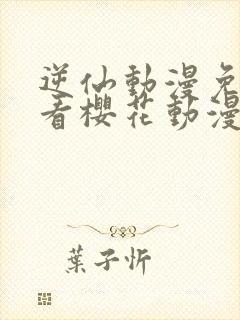 逆仙動漫免
看櫻花動漫
葉子忻